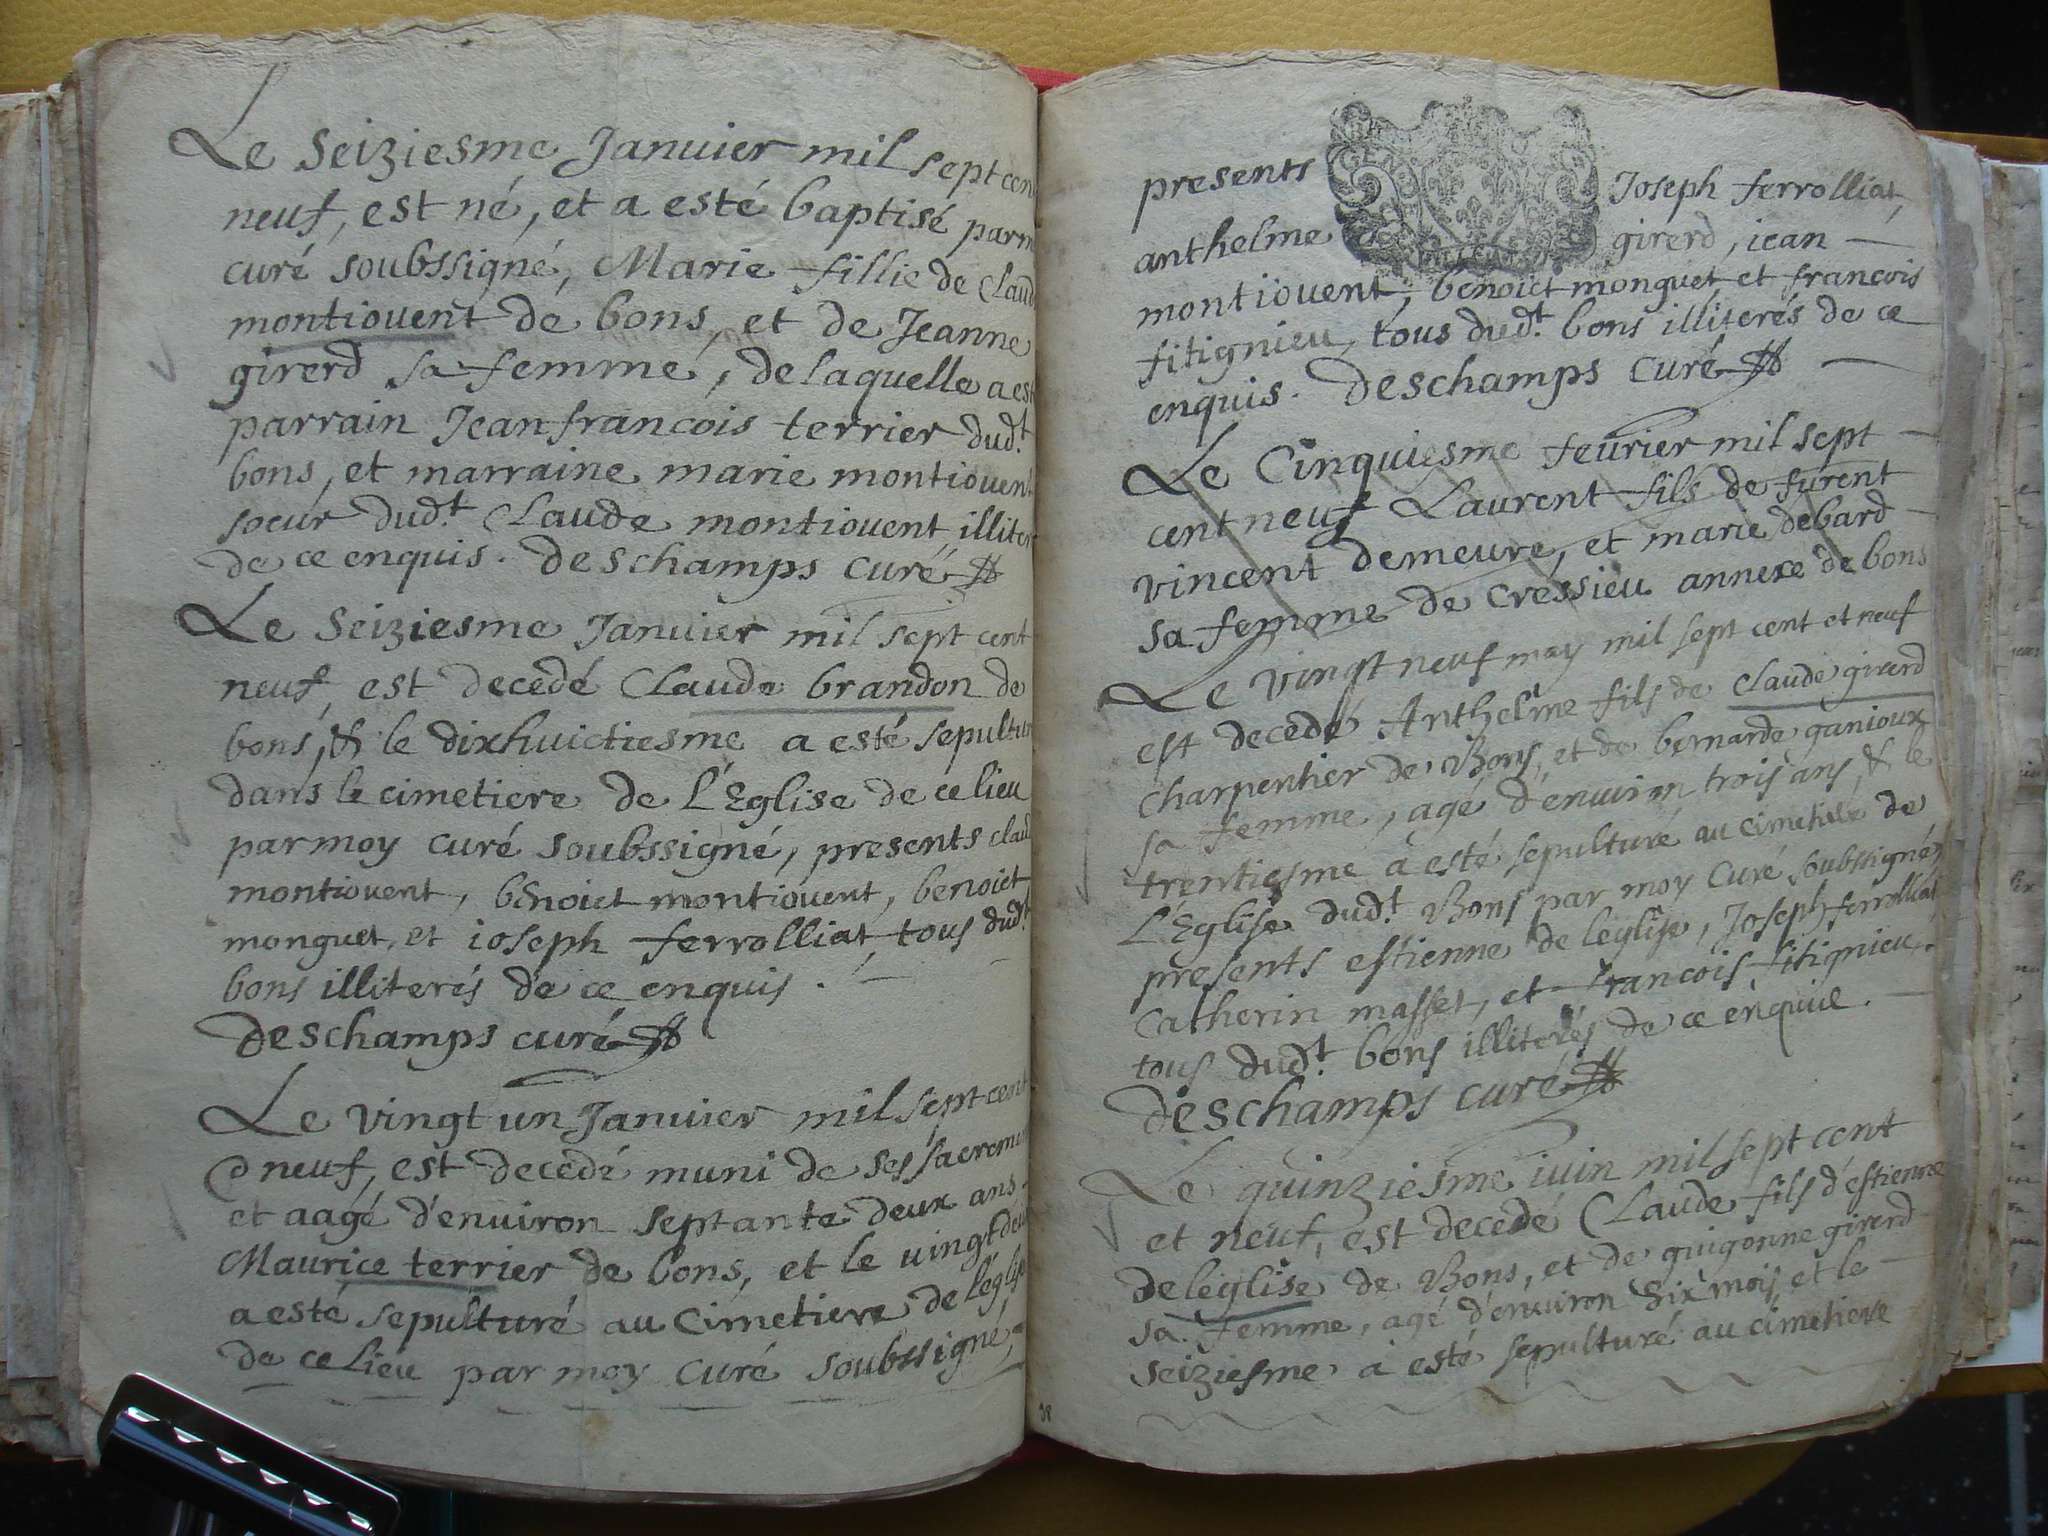 Le Seiziesme Januier mil sept cen
neuf, est né, et a esté baptisé par m
curé soubssigné, Marie fillie de Claud
montiouent de bons, et de Jeanne
girerd sa femme, de laquelle a est
parrain Jean francois terrier dud.t
bons, et marraine marie montiouent
soeur dud.t Claude montiouent illiter
de ce enquis. Deschamps curé
Le Seiziesme Januier mil sept cent
neuf, est decedé Claude brandon de
bons, & le dixhuictiesme a esté sepultur
dans le cimetiere de L'Eglise de ce lieu
par moy curé soubssigné, presents claud
montiouent, benoict montiouent, benoict
monguet, et ioseph ferrolliat, tous dud.t
bons illiterés de ce enquis.
Deschamps curé
Le vingt un Januier mil sept cent
neuf, est decedé muni de ses sacremen
et aagé d'enuiron septante deux ans
Maurice terrier de bons, et le vingtdeux
a esté sepulturé au Cimetiere de l'église
de ce lieu par moy curé soubssigné,
presents Joseph ferrolliat,
anthelme girerd, iean
montiouent, benoict monguet et francois
fitignieu, tous dud.t bons illiterés de ce
enquis. Deschamps Curé
Le Cinquiesme feurier mil sept
cent neuf Laurent fils de furent
vincent demeure, et marie debard
sa femme de Cressieu annexe de bons
Le vingt neuf may mil sept cent et neuf
est decedé Anthelme fils de Claude girerd
charpentier de Bons, et de bernarde ganioux
sa femme, agé d'enuiron trois ans, & le
trentiesme a esté sepulturé au cimetiere de
L'Eglise dud.t Bons par moy Curé soubssigné,
presents estienne de leglise, Joseph ferrolliat,
Catherin masset, et francois fitignieu,
tous dud.t bons illiterés de ce enquis.
Deschamps curé
Le quinziesme iuin mil sept cent
et neuf, est decedé Claude fils d'estienne
deleglise de Bons, et de guigonne girerd
sa femme, agé d'enuiron six mois, et le
seiziesme a esté sepulturé au cimetiere
38